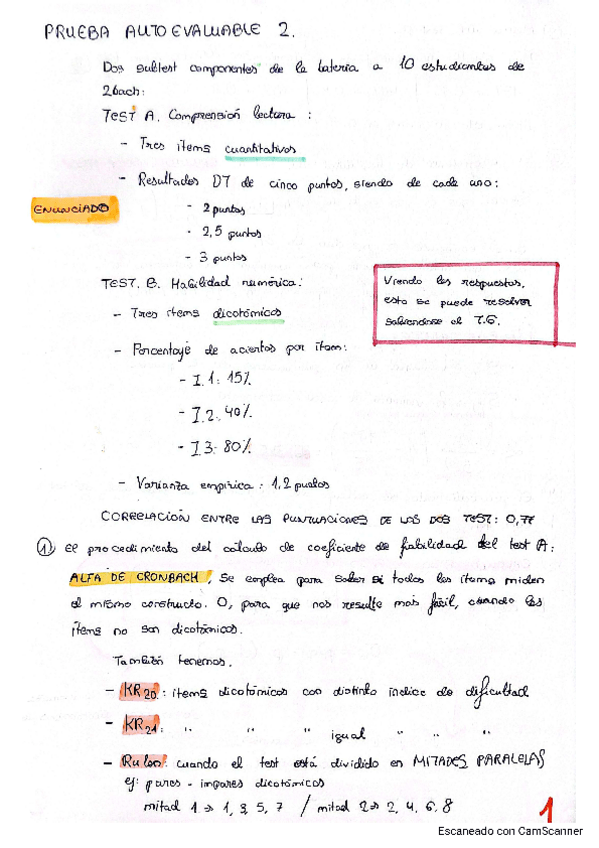 PRUEBA AUTOEVALUABLE 2.
Dos subtest componentes de la batería a 10 estudiantes de
2bach:
TEST A. Comprensión lectora:
- Tres ítems cuantitativos
- Resultados DT de cinco puntos, siendo de cada uno:
ENUNCIADO
- 2 puntos
- 2,5 puntos
- 3 puntos
TEST. B. Habilidad numérica:
- Tres ítems dicotómicos
- Porcentaje de aciertos por ítem:
- I.1: 15%
- I.2: 40%
- I.3: 80%
- Varianza empírica: 1,2 puntos
Viendo las respuestas,
esto se puede resolver
sabiendose el T.6.
CORRELACIÓN ENTRE LAS PUNTUACIONES DE LOS DOS TEST: 0,77
1) El procedimiento del cálculo de coeficiente de fiabilidad del test A:
ALFA DE CRONBACH, se emplea para saber si todos los ítems miden
el mismo constructo. O, para que nos resulte más fácil, cuando los
ítems no son dicotómicos.
También tenemos.
- KR20: ítems dicotómicos con distinto índice de dificultad
- KR21: " " " igual " "
- Rulon: cuando el test está dividido en MITADES PARALELAS
ej: pares - impares dicotómicos
mitad 1 => 1, 3, 5, 7 / mitad 2 => 2, 4, 6, 8
1
Escaneado con CamScanner